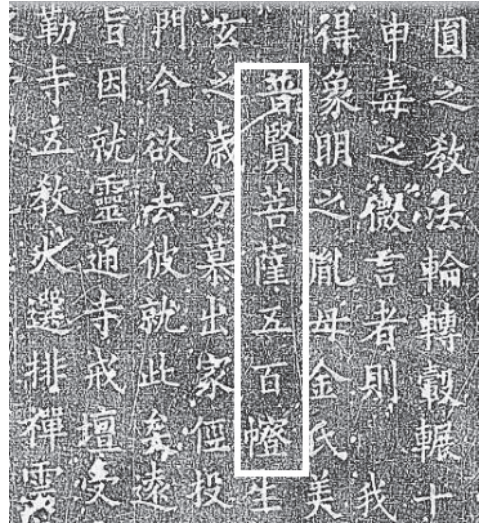 圓之教法輪轉轂輾十
申毒之微言者則 我
得象明之胤母金氏美
普賢菩薩五百 生
玄之歲方慕出家俓投
門今欲去彼就此矣遠
旨因就靈通寺戒壇受
勒寺五教大選排禪雲